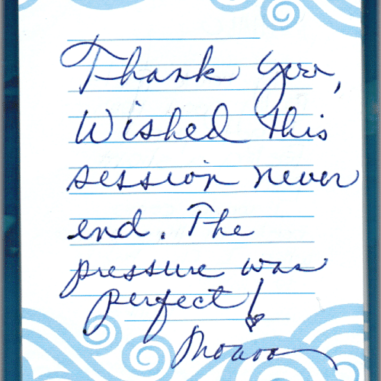 Thank you,
Wished this
session never
end. The
pressure was
perfect!